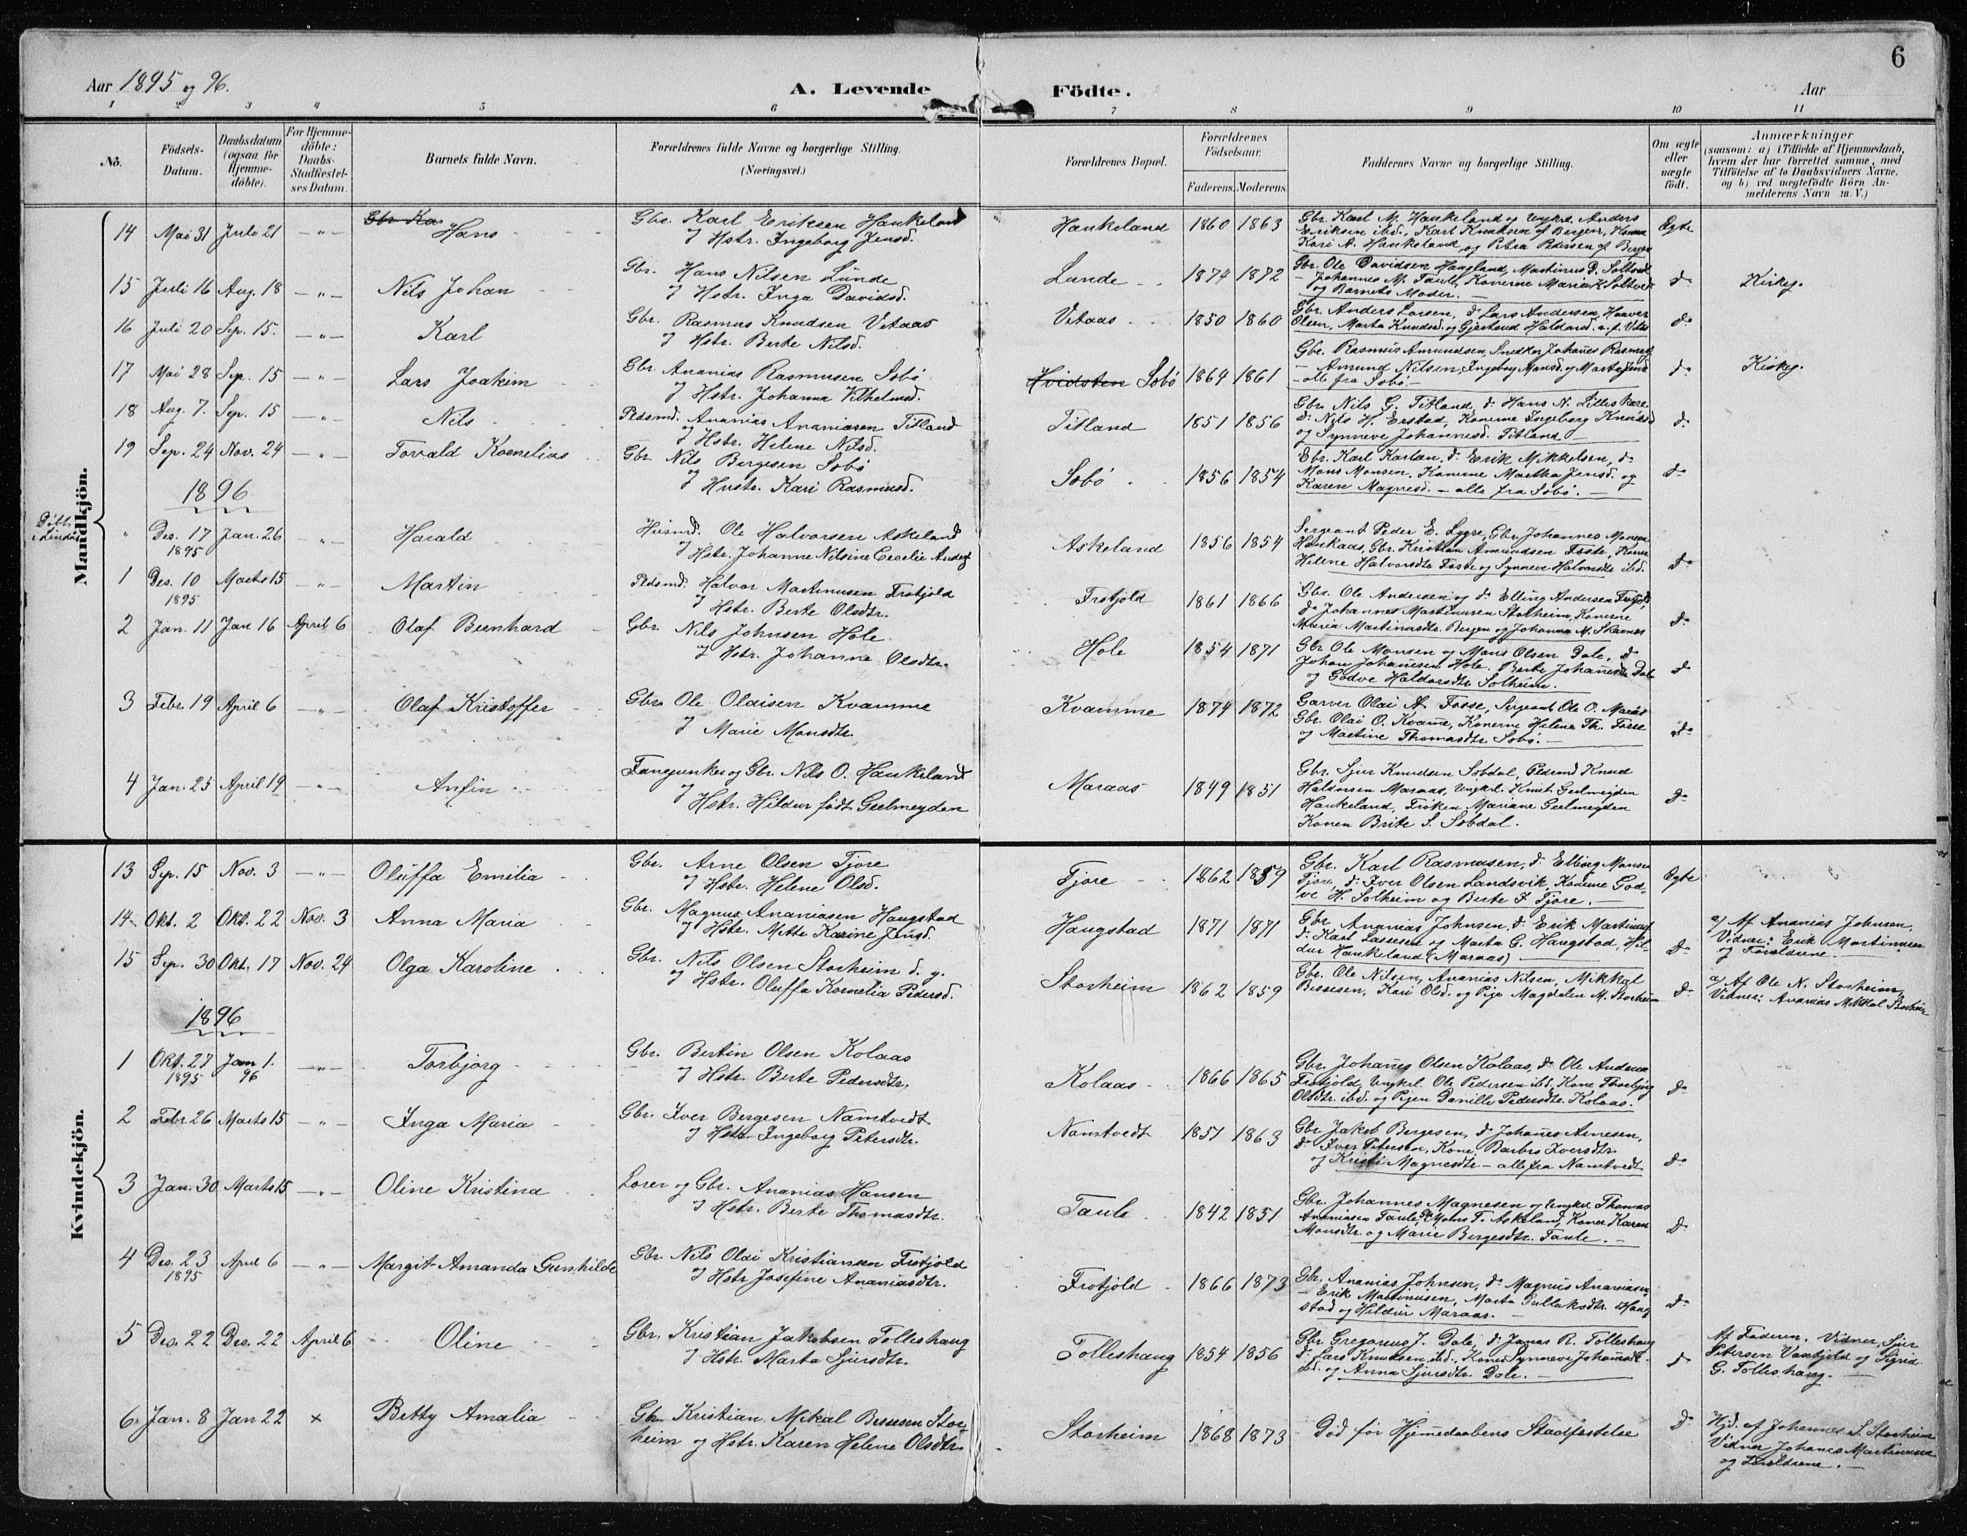 6
Aar 1895 og 96.
A. Levende Födte.
Aar
1 2 3 4 5 6 7 8 9 10 11
No.
Födsels-
Datum.
Daabsdatum
(ogsaa for
Hjemme-
döbte).
For Hjemme-
döbte:
Daabs-
Stadfæstel-
ses Datum.
Barnets fulde Navn.
Forældrenes fulde Navne og borgerlige Stilling.
(Næringsvei.)
Forældrenes Bopæl.
Forældrenes
Födselsaar.
Faderens. Moderens.
Faddernes Navne og borgerlige Stilling.
Om ægte
eller
uægte
födt.
Anmærkninger
(saasom: a) i Tilfælde af Hjemmedaab,
hvem der har forrettet samme, med
Tilföielse af to Daabsvidners Navne.
og b) ved uægtefödte Börn An-
melderens Navn m. V.)
Mandkjön.
14 Mai 31 Juli 21 - " - Gbr. Ka
Hans
Gbr. Karl Eriksen Haukeland
Hstr. Ingeborg Jensd.
Haukeland 1860 1863
Gbr. Karl M. Haukeland og Ungkrl. Anders
Eriksen ibd., Karl Knutsen af Bergen,
Kari A. Haukeland og Petra af Bergen
Ægte
15 Juli 16 Aug. 18 - " - Nils Johan
Gbr. Hans Nilsen Lunde
Hstr. Inga Davidsd.
Lunde 1874 1872
Gbr. Ole Davidsen Haugland, Martinus
Johannes M. Taule, Konerne Maria K. Soltved
og Barnets Moder. -
do Kirkeg.
16 Juli 20 Sep. 15. - " - Karl
Gbr. Rasmus Knudsen Vetaas
Hstr. Berte Nilsd.
Vetaas 1850 1860
Gbr. Anders Larsen, do Lars Andersen
Olsen, Marta Knudsd. og Gjertrud
do
17 Mai 28 Sep. 15 - " - Lars Joakim
Gbr. Ananias Rasmusen Sæbö
Hstr. Johanna Vilhelmsd.
Hvidsten Sæbö 1864 1861
Gbr. Rasmus Amundsen, Snedker Johanes
- Amund Nilsen, Ingeborg Monsd. og Marta
- alle fra Sæbö -
do Kirkeg.
18 Aug. 7. Sep. 15 - " - Nils
Pldsmd. Ananias Ananiasen Titland
og Hstr. Helene Nilsd.
Titland 1851 1856
Gbr. Nils G. Titland, do Hans N.
do Nils H. Erstad, Konerne Ingeborg
og Synneve Johannesd. Titland -
do
19 Sep. 24 Nov. 24 - " - Torvald Kornelius
Gbr. Nils Bergesen Sæbö
Hustr. Kari Rasmusd.
Sæbö 1856 1854
Gbr. Karl Karlsen, do Erik Mikkelsen, do
Mons Monsen, Konerne Martha Jensd. og
Karen Magnesd. - alle fra Sæbö. -
do
1896
Döbt
i Lindås
" Des. 17
1895 Jan. 26 - " - Harald
Husmd. Ole Halvorsen Askeland
Hstr. Johanne Nilsine Cecilie
Askeland 1856 1854
Sergeant Peder E. Lygre, Gbr. Johannes
Gbr. Kristian Amundsen
Helene Halvorsdtr. og Synneve Halvorsdtr. ibd.
do
1 Des. 10
1895 Marts 15 - " - Martin
Pldsmd. Halvor Martinusen Frotjold
Hstr. Berte Olsdtr.
Frotjold 1861 1866
Gbr. Ole Andersen og do Elling Andersen
do Johannes Martinusen Storheim, Konerne
Maria Martinusdtr. Bergen og Johanna M.
do
2 Jan. 11 Jan 16 April 6 Olaf Bernhard
Gbr. Nils Johnsen Hole
Hstr. Johanne Olsdtr.
Hole 1854 1871
Gbr. Ole Monsen og Mons Olsen Dale, do
Johan Johanesen Hole, Berte Johanesdtr. Dale
og Gjödve Haldorsdtr Solheim.
do
3 Febr. 19 April 6 - " - Olaf Kristoffer
Gbr. Ole Olaisen Kvamme
Marie Monsdtr.
Kvamme 1874 1872
Garver Olai A. Fosse, Sergeant Ole O.
Gbr. Olai O. Kvame, Konerne Helene Th. Fosse
og Martine Thomasdtr Sæbö. -
do
4 Jan. 25 April 19 - " - Anfin
Fanejunker og Gbr. Nils O. Haukeland
Hstr. Hildur födt Geelmeyden
Maraas 1849 1851
Gbr. Sjur Knudsen Sæbdal, Pldsmd Knud
Haldorsen Maraas, Ungkrl. Knut Geelmeyden
Haukeland, Fröken Mariane Geelmeyden
Konen Brite S. Sæbdal.
do
Kvindekjön.
13 Sep. 15 Nov. 3 - " - Oluffa Emilia
Gbr. Arne Olsen Fjore
Hstr. Helene Olsd.
Fjore 1862 1859
Gbr. Karl Rasmusen, do Elling Monsen
Fjore, do Iver Olsen Landsvik, Konerne God-
ve H. Solheim og Berte I. Fjore. -
Ægte
14 Okt. 2 Okt. 22 Nov. 3 Anna Maria
Gbr. Magnus Ananiasen Haugstad
Hstr. Mette Karine Jensd.
Haugstad 1871 1871
Gbr. Ananias Johnsen, do Erik Martinus
do Karl Lassesen og Marta G. Haugstad, Hil-
dur Haukeland (Maraas)
do
a/ Af Ananias Johnsen,
Vidner: Erik Martinusen
og Forældrene. -
15 Sep. 30 Okt. 17 Nov. 24 Olga Karoline
Gbr. Nils Olsen Storheim d. y.
og Hstr. Oluffa Kornelia Pedersd.
Storheim 1862 1859
Gbr. Ole Nilsen, Ananias Nilsen, Mikkal
Bessesen, Kari Olsd. og Pige Magdalen M. Storheim
do
a/ Af Ole N. Storheim,
Vidner: Ananias Mikkal Storheim
1896
1 Okt. 27
1895 Jan 1.
96 - " - Torbjorg
Gbr. Bertin Olsen Kolaas
Hstr. Berte Pedersdtr.
Kolaas 1866 1865
Gbr. Johanes Olsen Kolaas, do Ole Anderse
Frotjold, Ungkrl. Ole Pedersen ibd, Kone Thorbjörg
Olsdtr. ibd. og Pigen Danille Pedersdtr. Kolaas.
do
2 Febr 26 Marts 15 - " - Inga Maria
Gbr. Iver Bergesen Namtvedt
Hstr Ingeborg Petersdtr.
Namtvedt 1851 1863
Gbr. Jakob Bergesen, do Johanes Arnesen,
do Iver Petersen, Kone Barbro Iversdtr.
og Kristi Magnesdtr - alle fra Namtvedt
do
3 Jan. 30 Marts 15 - " - Oline Kristina
Lærer og Gbr. Ananias Hansen
Hstr. Berte Thomasdtr.
Taule 1842 1851
Gbr. Johannes Magnesen og Ungkrl. Thomas
Ananiasen Taule, Gbr. Mons T. Askeland, Koner Karen
Monsdtr. og Marie Bergesdtr. Taule. -
do
4 Des. 23
1895 April 6 - " - Margit Amanda Gunhilde
Gbr. Nils Olai Kristiansen Frotjold
Hstr. Josefine Ananiasdtr.
Frotjold 1866 1873
Gbr. Ananias Johnsen, do Magnus Ananiasen
- Erik Martinusen, Marta Gullaksdtr. Haug
stad og Hildur Maraas. -
do
5 Des. 22 Des. 22 April 6 Oline
Gbr. Kristian Jakobsen Tolleshaug
Hstr. Marta Sjursdtr.
Tolleshaug 1854 1856
Gbr. Gregorius J. Dale, do Jonas R. Tolleshaug
do Lars Knudsen ibd., Kone Synneve
ibd. og Anna Sjursdtr. Dale. -
do
Af Faderen. Vidner, Sjur
Petersen og Sigrid
G. Tolleshaug. -
6 Jan. 8 Jan 22 × Betty Amalia
Gbr. Kristian Mikal Bessesen Stor-
heim og Hstr. Karen Helene Olsdtr.
Storheim 1868 1873
Död för Hjemedaabens Stadfestelse
do
Hjd. af Johannes S. Storheim
Vidner Johanes Martinusen
og Forældrene. -